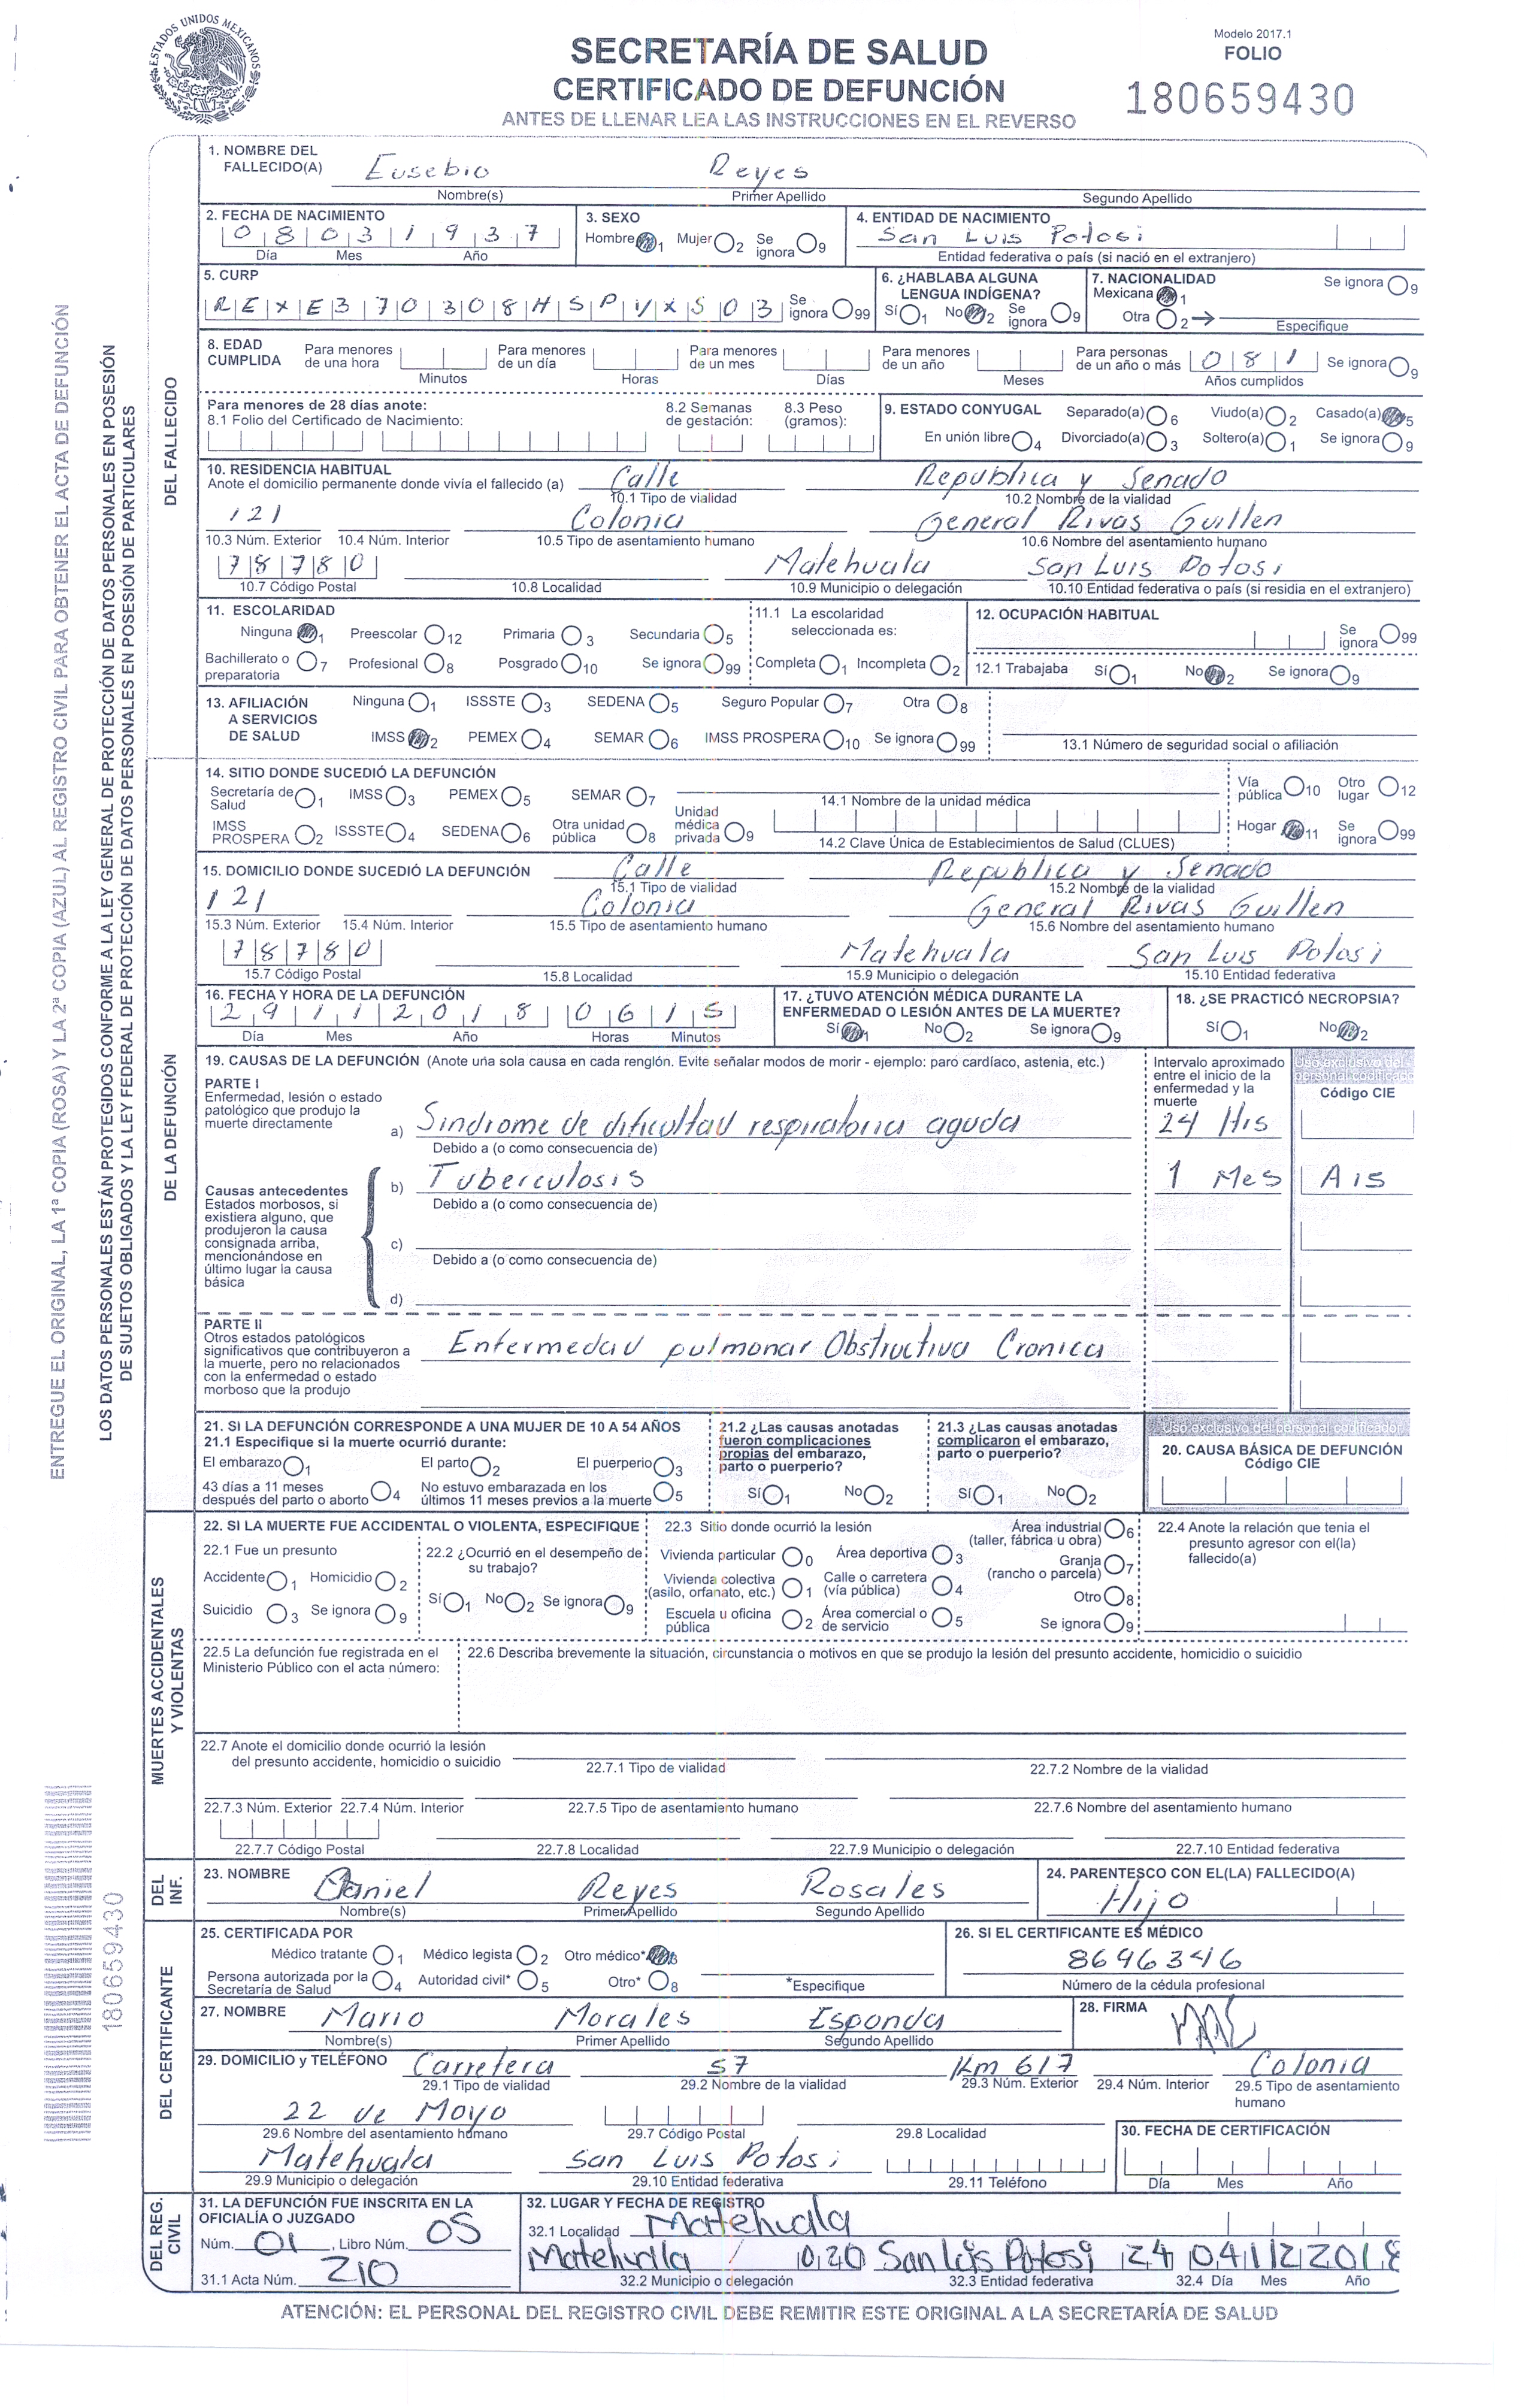 ESTADOS UNIDOS MEXICANOS
SECRETARÍA DE SALUD
CERTIFICADO DE DEFUNCIÓN
ANTES DE LLENAR LEA LAS INSTRUCCIONES EN EL REVERSO
Modelo 2017.1
FOLIO
180659430
ENTREGUE EL ORIGINAL, LA 1ª COPIA (ROSA) Y LA 2ª COPIA (AZUL) AL REGISTRO CIVIL PARA OBTENER EL ACTA DE DEFUNCIÓN
LOS DATOS PERSONALES ESTÁN PROTEGIDOS CONFORME A LA LEY GENERAL DE PROTECCIÓN DE DATOS PERSONALES EN POSESIÓN
DE SUJETOS OBLIGADOS Y LA LEY FEDERAL DE PROTECCIÓN DE DATOS PERSONALES EN POSESIÓN DE PARTICULARES
180659430
DEL FALLECIDO
1. NOMBRE DEL FALLECIDO(A) Eusebio Reyes
Nombre(s) Primer Apellido Segundo Apellido
2. FECHA DE NACIMIENTO 08031937
Día Mes Año
3. SEXO
Hombre 1 Mujer 2 Se ignora 9
4. ENTIDAD DE NACIMIENTO
San Luis Potosi
Entidad federativa o país (si nació en el extranjero)
5. CURP
REXE370308HSPYXS03 Se ignora 99
6. ¿HABLABA ALGUNA LENGUA INDÍGENA?
Sí 1 No 2 Se ignora 9
7. NACIONALIDAD Se ignora 9
Mexicana 1
Otra 2 Especifique
8. EDAD CUMPLIDA
Para menores de una hora Minutos
Para menores de un día Horas
Para menores de un mes Días
Para menores de un año Meses
Para personas de un año o más 081 Años cumplidos
Se ignora 9
Para menores de 28 días anote:
8.1 Folio del Certificado de Nacimiento:
8.2 Semanas de gestación:
8.3 Peso (gramos):
9. ESTADO CONYUGAL Separado(a) 6 Viudo(a) 2 Casado(a) 5
En unión libre 4 Divorciado(a) 3 Soltero(a) 1 Se ignora 9
10. RESIDENCIA HABITUAL
Anote el domicilio permanente donde vivía el fallecido (a) Calle Republica y Senado
10.1 Tipo de vialidad 10.2 Nombre de la vialidad
121 Colonia General Rivas Guillen
10.3 Núm. Exterior 10.4 Núm. Interior 10.5 Tipo de asentamiento humano 10.6 Nombre del asentamiento humano
78780 Matehuala San Luis Potosi
10.7 Código Postal 10.8 Localidad 10.9 Municipio o delegación 10.10 Entidad federativa o país (si residia en el extranjero)
11. ESCOLARIDAD
Ninguna 1 Preescolar 12 Primaria 3 Secundaria 5
Bachillerato o preparatoria 7 Profesional 8 Posgrado 10 Se ignora 99
11.1 La escolaridad seleccionada es:
Completa 1 Incompleta 2
12. OCUPACIÓN HABITUAL
Se ignora 99
12.1 Trabajaba Sí 1 No 2 Se ignora 9
13. AFILIACIÓN A SERVICIOS DE SALUD
Ninguna 1 ISSSTE 3 SEDENA 5 Seguro Popular 7 Otra 8
IMSS 2 PEMEX 4 SEMAR 6 IMSS PROSPERA 10 Se ignora 99
13.1 Número de seguridad social o afiliación
DE LA DEFUNCIÓN
14. SITIO DONDE SUCEDIÓ LA DEFUNCIÓN
Secretaría de Salud 1 IMSS 3 PEMEX 5 SEMAR 7
IMSS PROSPERA 2 ISSSTE 4 SEDENA 6 Otra unidad pública 8 Unidad médica privada 9
14.1 Nombre de la unidad médica
14.2 Clave Única de Establecimientos de Salud (CLUES)
Vía pública 10 Otro lugar 12
Hogar 11 Se ignora 99
15. DOMICILIO DONDE SUCEDIÓ LA DEFUNCIÓN Calle Republica y Senado
15.1 Tipo de vialidad 15.2 Nombre de la vialidad
121 Colonia General Rivas Guillen
15.3 Núm. Exterior 15.4 Núm. Interior 15.5 Tipo de asentamiento humano 15.6 Nombre del asentamiento humano
78780 Matehuala San Luis Potosi
15.7 Código Postal 15.8 Localidad 15.9 Municipio o delegación 15.10 Entidad federativa
16. FECHA Y HORA DE LA DEFUNCIÓN
29112018 0615
Día Mes Año Horas Minutos
17. ¿TUVO ATENCIÓN MÉDICA DURANTE LA ENFERMEDAD O LESIÓN ANTES DE LA MUERTE?
Sí 1 No 2 Se ignora 9
18. ¿SE PRACTICÓ NECROPSIA?
Sí 1 No 2
19. CAUSAS DE LA DEFUNCIÓN (Anote una sola causa en cada renglón. Evite señalar modos de morir - ejemplo: paro cardíaco, astenia, etc.)
Intervalo aproximado entre el inicio de la enfermedad y la muerte
Uso exclusivo del personal codificador
Código CIE
PARTE I
Enfermedad, lesión o estado patológico que produjo la muerte directamente
a) Sindrome de dificultad respiratoria aguda 24 Hrs
Debido a (o como consecuencia de)
b) Tuberculosis 1 Mes A15
Debido a (o como consecuencia de)
Causas antecedentes
Estados morbosos, si existiera alguno, que produjeron la causa consignada arriba, mencionándose en último lugar la causa básica
c)
Debido a (o como consecuencia de)
d)
PARTE II
Otros estados patológicos significativos que contribuyeron a la muerte, pero no relacionados con la enfermedad o estado morboso que la produjo
Enfermedad pulmonar Obstructiva Cronica
21. SI LA DEFUNCIÓN CORRESPONDE A UNA MUJER DE 10 A 54 AÑOS
21.1 Especifique si la muerte ocurrió durante:
El embarazo 1 El parto 2 El puerperio 3
43 días a 11 meses después del parto o aborto 4 No estuvo embarazada en los últimos 11 meses previos a la muerte 5
21.2 ¿Las causas anotadas fueron complicaciones propias del embarazo, parto o puerperio?
Sí 1 No 2
21.3 ¿Las causas anotadas complicaron el embarazo, parto o puerperio?
Sí 1 No 2
Uso exclusivo del personal codificador
20. CAUSA BÁSICA DE DEFUNCIÓN
Código CIE
MUERTES ACCIDENTALES Y VIOLENTAS
22. SI LA MUERTE FUE ACCIDENTAL O VIOLENTA, ESPECIFIQUE
22.1 Fue un presunto
Accidente 1 Homicidio 2
Suicidio 3 Se ignora 9
22.2 ¿Ocurrió en el desempeño de su trabajo?
Sí 1 No 2 Se ignora 9
22.3 Sitio donde ocurrió la lesión
Vivienda particular 0 Área deportiva 3
Vivienda colectiva (asilo, orfanato, etc.) 1 Calle o carretera (vía pública) 4
Escuela u oficina pública 2 Área comercial o de servicio 5
Área industrial (taller, fábrica u obra) 6
Granja (rancho o parcela) 7
Otro 8
Se ignora 9
22.4 Anote la relación que tenia el presunto agresor con el(la) fallecido(a)
22.5 La defunción fue registrada en el Ministerio Público con el acta número:
22.6 Describa brevemente la situación, circunstancia o motivos en que se produjo la lesión del presunto accidente, homicidio o suicidio
22.7 Anote el domicilio donde ocurrió la lesión del presunto accidente, homicidio o suicidio
22.7.1 Tipo de vialidad 22.7.2 Nombre de la vialidad
22.7.3 Núm. Exterior 22.7.4 Núm. Interior 22.7.5 Tipo de asentamiento humano 22.7.6 Nombre del asentamiento humano
22.7.7 Código Postal 22.7.8 Localidad 22.7.9 Municipio o delegación 22.7.10 Entidad federativa
DEL INF.
23. NOMBRE Daniel Reyes Rosales
Nombre(s) Primer Apellido Segundo Apellido
24. PARENTESCO CON EL(LA) FALLECIDO(A)
Hijo
DEL CERTIFICANTE
25. CERTIFICADA POR
Médico tratante 1 Médico legista 2 Otro médico* 3
Persona autorizada por la Secretaría de Salud 4 Autoridad civil* 5 Otro* 8 *Especifique
26. SI EL CERTIFICANTE ES MÉDICO
8696346
Número de la cédula profesional
27. NOMBRE Mario Morales Esponda
Nombre(s) Primer Apellido Segundo Apellido
28. FIRMA
29. DOMICILIO y TELÉFONO Carretera 57 Km 617 Colonia
29.1 Tipo de vialidad 29.2 Nombre de la vialidad 29.3 Núm. Exterior 29.4 Núm. Interior 29.5 Tipo de asentamiento humano
22 de Mayo
29.6 Nombre del asentamiento humano 29.7 Código Postal 29.8 Localidad
Matehuala San Luis Potosi
29.9 Municipio o delegación 29.10 Entidad federativa 29.11 Teléfono
30. FECHA DE CERTIFICACIÓN
Día Mes Año
DEL REG. CIVIL
31. LA DEFUNCIÓN FUE INSCRITA EN LA OFICIALÍA O JUZGADO
Núm. 01, Libro Núm. 05
31.1 Acta Núm. 210
32. LUGAR Y FECHA DE REGISTRO
32.1 Localidad Matehuala
Matehuala 020 San Luis Potosi 24 04122018
32.2 Municipio o delegación 32.3 Entidad federativa 32.4 Día Mes Año
ATENCIÓN: EL PERSONAL DEL REGISTRO CIVIL DEBE REMITIR ESTE ORIGINAL A LA SECRETARÍA DE SALUD